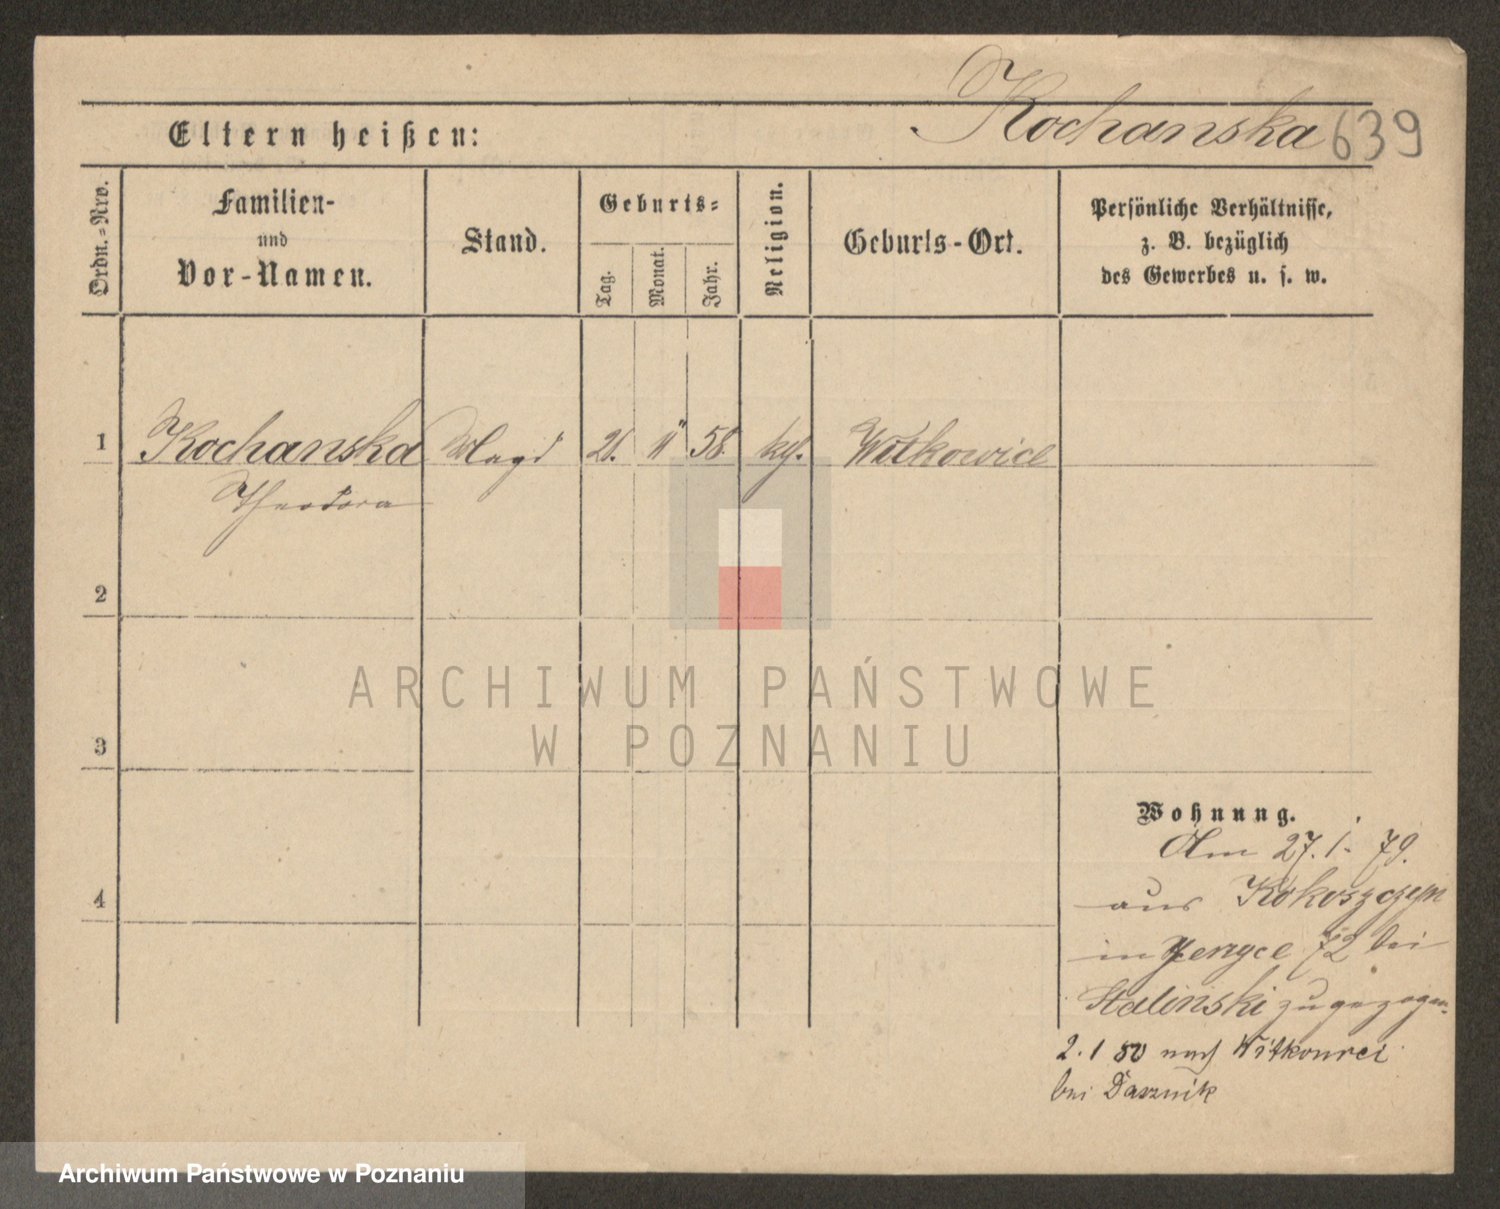 Kochanska 639
Eltern heißen:
Ordn.=Nro.
Familien-
und
Vor-Namen.
Stand.
Geburts=
Tag.
Monat.
Jahr.
Religion.
Geburts-Ort.
Persönliche Verhältnisse,
z. B. bezüglich
des Gewerbes u. s. w.
1 Kochanska Magd 11 58. Witkowice
Theodora
2
ARCHIWUM PAŃSTWOWE
W POZNANIU
3
Wohnung.
Am 27.1. 79.
4
aus Kokoszczyn
in Jerzyce 72 bei
Stalinski zugezogen.
2. 1 80 nach
bei
Archiwum Państwowe w Poznaniu